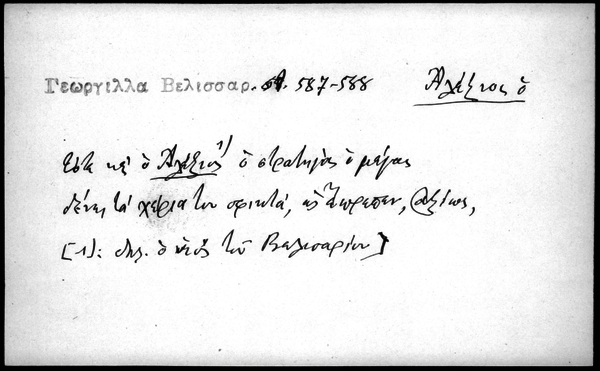 Γεωργιλλα Βελισσαρ. 587-588 Ἀλέξιος ὁ
κὲ ὁ Ἀλέξιος¹⁾ ὁ στρατηγὸς ὁ μέγας
δένει τὰ χέρια του σφικτά, ὡς ἔπρεπεν, ἀξίως,
[1): δηλ. ὁ υἱὸς τοῦ Βελισαρίου]